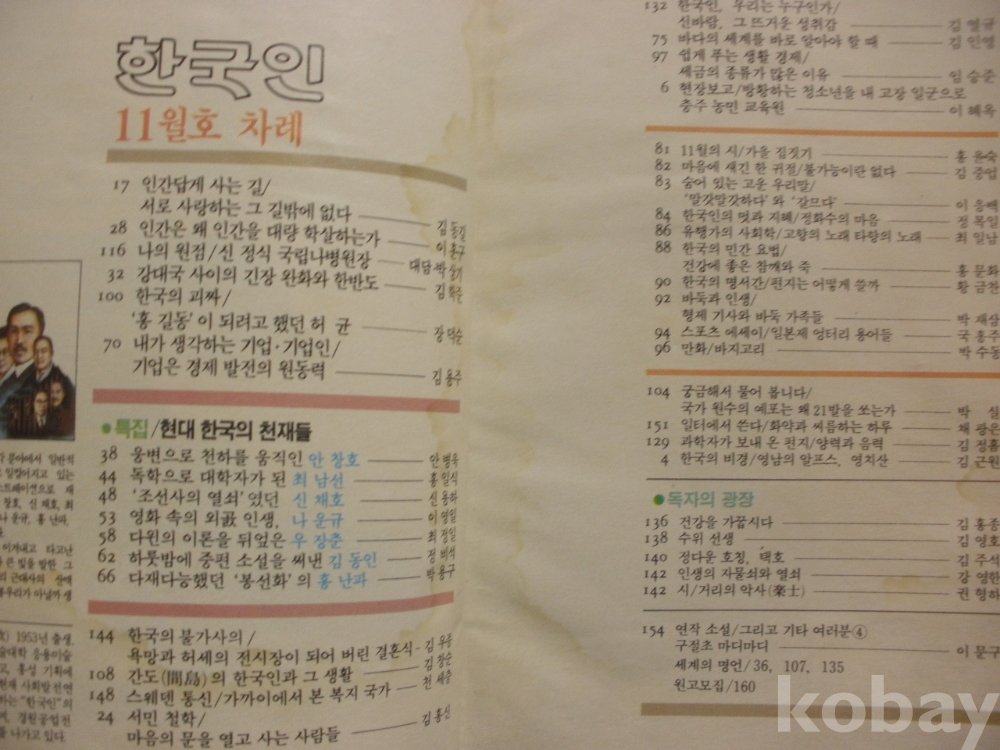 한국인
11월호 차례
17 인간답게 사는 길/
서로 사랑하는 그 길밖에 없다 김 동길
28 인간은 왜 인간을 대량 학살하는가 이 흥구
116 나의 원점/신 정식 국립나병원장 대담·박 상기
32 강대국 사이의 긴장 완화와 한반도 김 학준
100 한국의 괴짜/
'홍 길동'이 되려고 했던 허 균 장 덕순
70 내가 생각하는 기업·기업인/
기업은 경제 발전의 원동력 김 용주
●특집/현대 한국의 천재들
38 웅변으로 천하를 움직인 안 창호 안 병욱
44 독학으로 대학자가 된 최 남선 홍 일식
48 '조선사의 열쇠'였던 신 채호 신 용하
53 영화 속의 외곬 인생, 나 운규 이 영일
58 다윈의 이론을 뒤엎은 우 장춘 최 정일
62 하룻밤에 중편 소설을 써낸 김 동인 정
66 다재다능했던 '봉선화'의 홍 난파 박 용구
144 한국의 불가사의/
욕망과 허세의 전시장이 되어 버린 결혼식 김 우종
108 간도(間島)의 한국인과 그 생활 김 창순
148 스웨덴 통신/가까이에서 본 복지 국가 천 세충
24 서민 철학/
마음의 문을 열고 사는 사람들 김 홍신
132 한국인, 우리는 누구인가/
신바람, 그 뜨거운 성취감 김 열규
75 바다의 세계를 바로 알아야 할 때 김 인영
97 쉽게 푸는 생활 경제/
세금의 종류가 많은 이유 임 승준
6 현장보고/방황하는 청소년을 내 고장 일군으로
충주 농민 교육원 이 혜옥
81 11월의 시/가을 집짓기 홍 윤숙
82 마음에 새긴 한 귀절/불가능이란 없다 김 중업
83 숨어 있는 고운 우리말/
'말갓말갓하다'와 '갈므다' 이 응백
84 한국인의 멋과 지혜/정화수의 마음 정 목일
86 유행가의 사회학/고향의 노래 타향의 노래 최 일남
88 한국의 민간 요법/
건강에 좋은 참깨와 죽 홍 문화
90 한국의 명서간/편지는 어떻게 쓸까 황 금찬
92 바둑과 인생/
형제 기사와 바둑 가족들 박 재삼
94 스포츠 에세이/일본제 엉터리 용어들 국 흥주
96 만화/바지고리 박 수동
104 궁금해서 물어 봅니다/
국가 원수의 예포는 왜 21발을 쏘는가 박 실
151 일터에서 쓴다/화약과 씨름하는 하루 채 광은
129 과학자가 보내 온 편지/양력과 음력 김 정흠
4 한국의 비경/영남의 알프스, 영치산 김 근원
●독자의 광장
136 건강을 가꿉시다 김 홍종
138 수위 선생 김 영호
140 정다운 호칭, 택호 김 주석
142 인생의 자물쇠와 열쇠 강 영한
142 시/거리의 악사(楽士) 권 형하
154 연작 소설/그리고 기타 여러분④
구절초 마디마디 이 문구
세계의 명언/36, 107, 135
원고모집/160
kobay